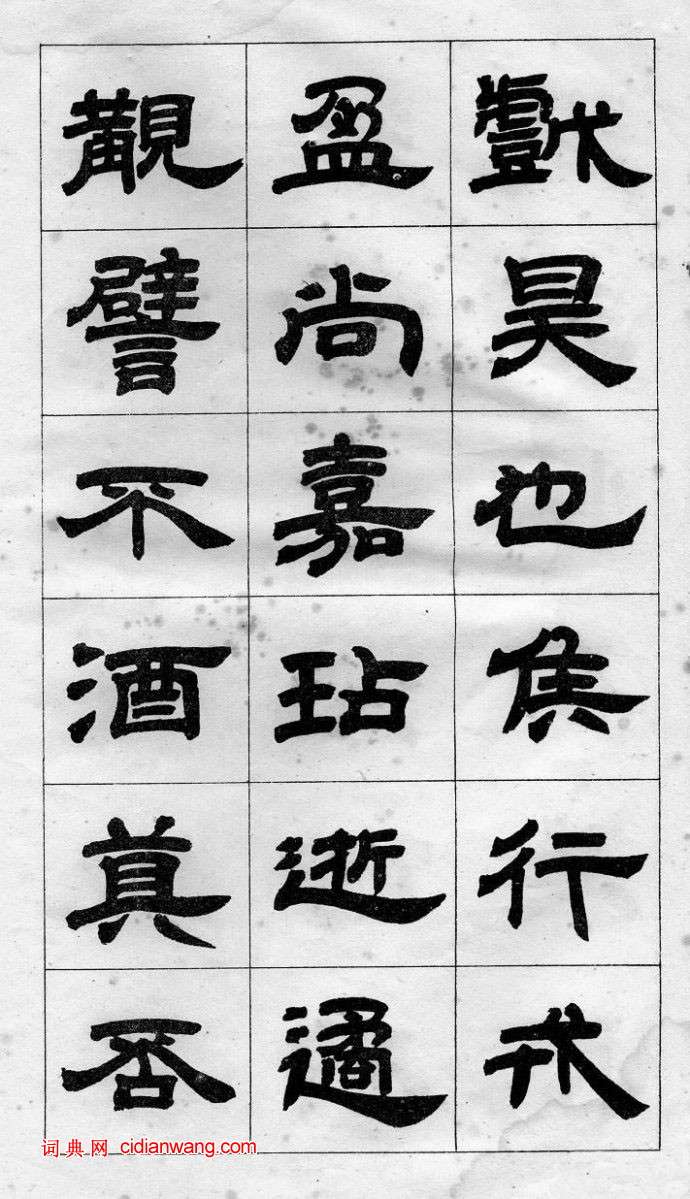 戲昊也焦行
盈尚嘉玷逝遹
譬不酒真否
词典网 cidianwang.com